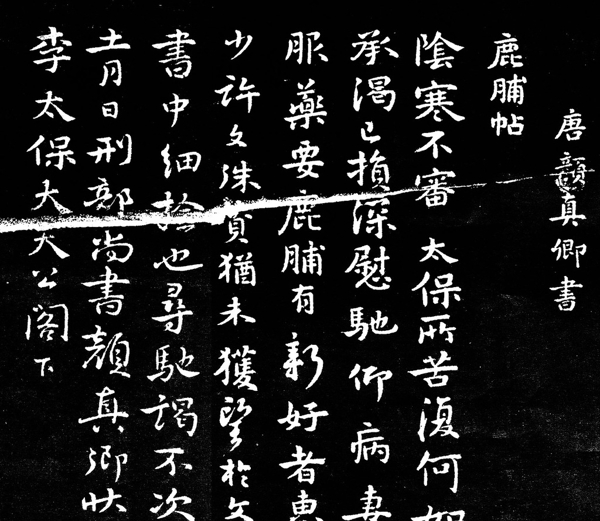 唐顏真卿書
鹿脯帖
陰寒不審太保所苦復何如
承渴已損深慰馳仰病妻
服藥要鹿脯有新好者惠
少許文殊質猶未獲望於文
書中細撿也尋馳謁不次
十一月日刑部尚書顏真卿狀
李太保大夫公閣下